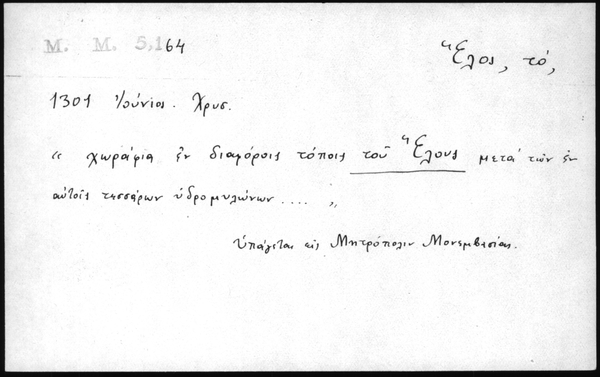 M. M. 5,164
Ἕλος, τό,
1301 Ἰούνιος. Χρυσ.
« χωράφια ἐν διαφόροις τόποις τοῦ Ἕλους μετά τῶν ἐν
αὐτοῖς τεσσάρων ὑδρομυλώνων .... „
Ὑπάγεται εἰς Μητρόπολιν Μονεμβασίας.